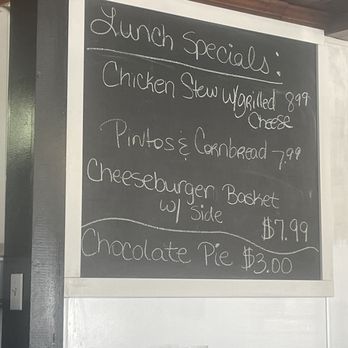 Lunch Specials:
Chicken Stew w/Grilled 8.99
Cheese
Pintos & Cornbread 7.99
Cheeseburger Basket
w/ Side
$7.99
Chocolate Pie $3.00